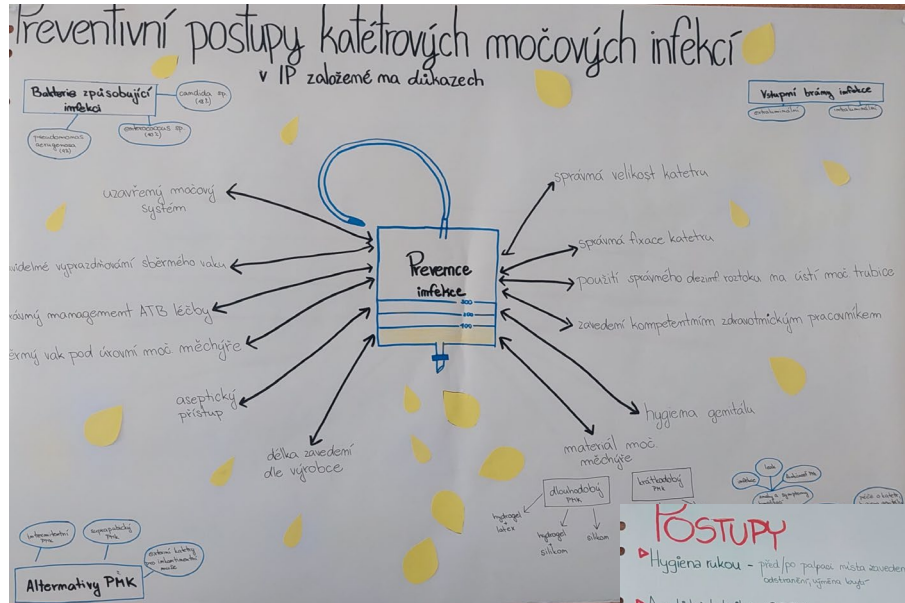 Preventivní postupy katétrových močových infekcí
v IP založené na důkazech
Bakterie způsobující
infekci
candida sp.
enterococcus sp.
pseudomonas
aeruginosa
Vstupní brány infekce
extraluminální
intraluminální
uzavřený močový
systém
videlné vyprazdňování sběrného vaku
rávný management ATB léčby
ěrný vak pod úrovní moč měchýře
aseptický
přístup
délka zavedení
dle výrobce
Prevence
infekce
300
200
100
správná velikost katetru
správná fixace katetru
použití správného dezinf roztoku na ústí moč trubice
zavedení kompetentním zdravotnickým pracovníkem
hygiena genitálu
materiál moč
měchýře
dlouhodobý
PMK
krátkodobý
PMK
hydrogel
latex
hydrogel
silikon
silikon
intermitentní
PMK
suprapubický
PMK
externí katetry
pro inkontinentní
muže
Alternativy PMK
POSTUPY
Hygiena rukou - před/po palpaci místa zaveden
odstranění, výměna